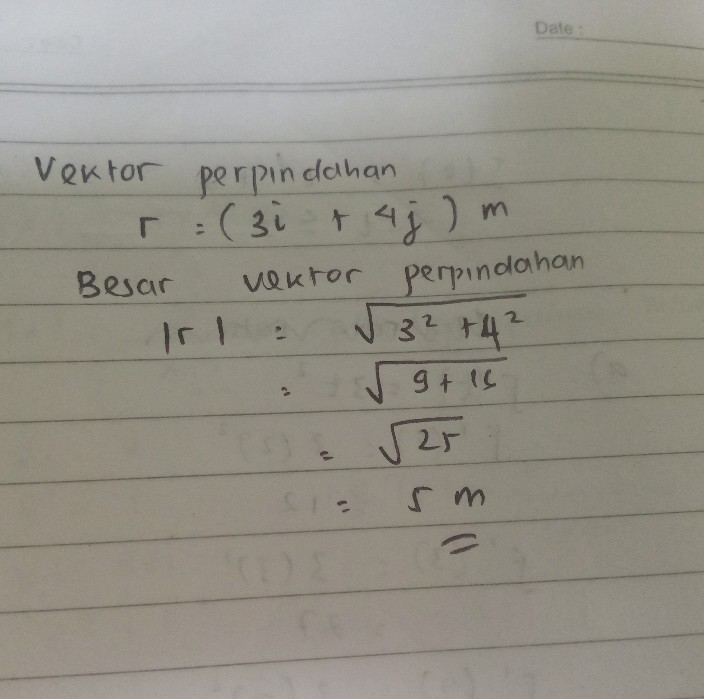 Date:
Vektor perpindahan
r = (3i + 4j) m
Besar vektor perpindahan
|r| = √3² + 4²
= √9 + 16
= √25
= 5 m